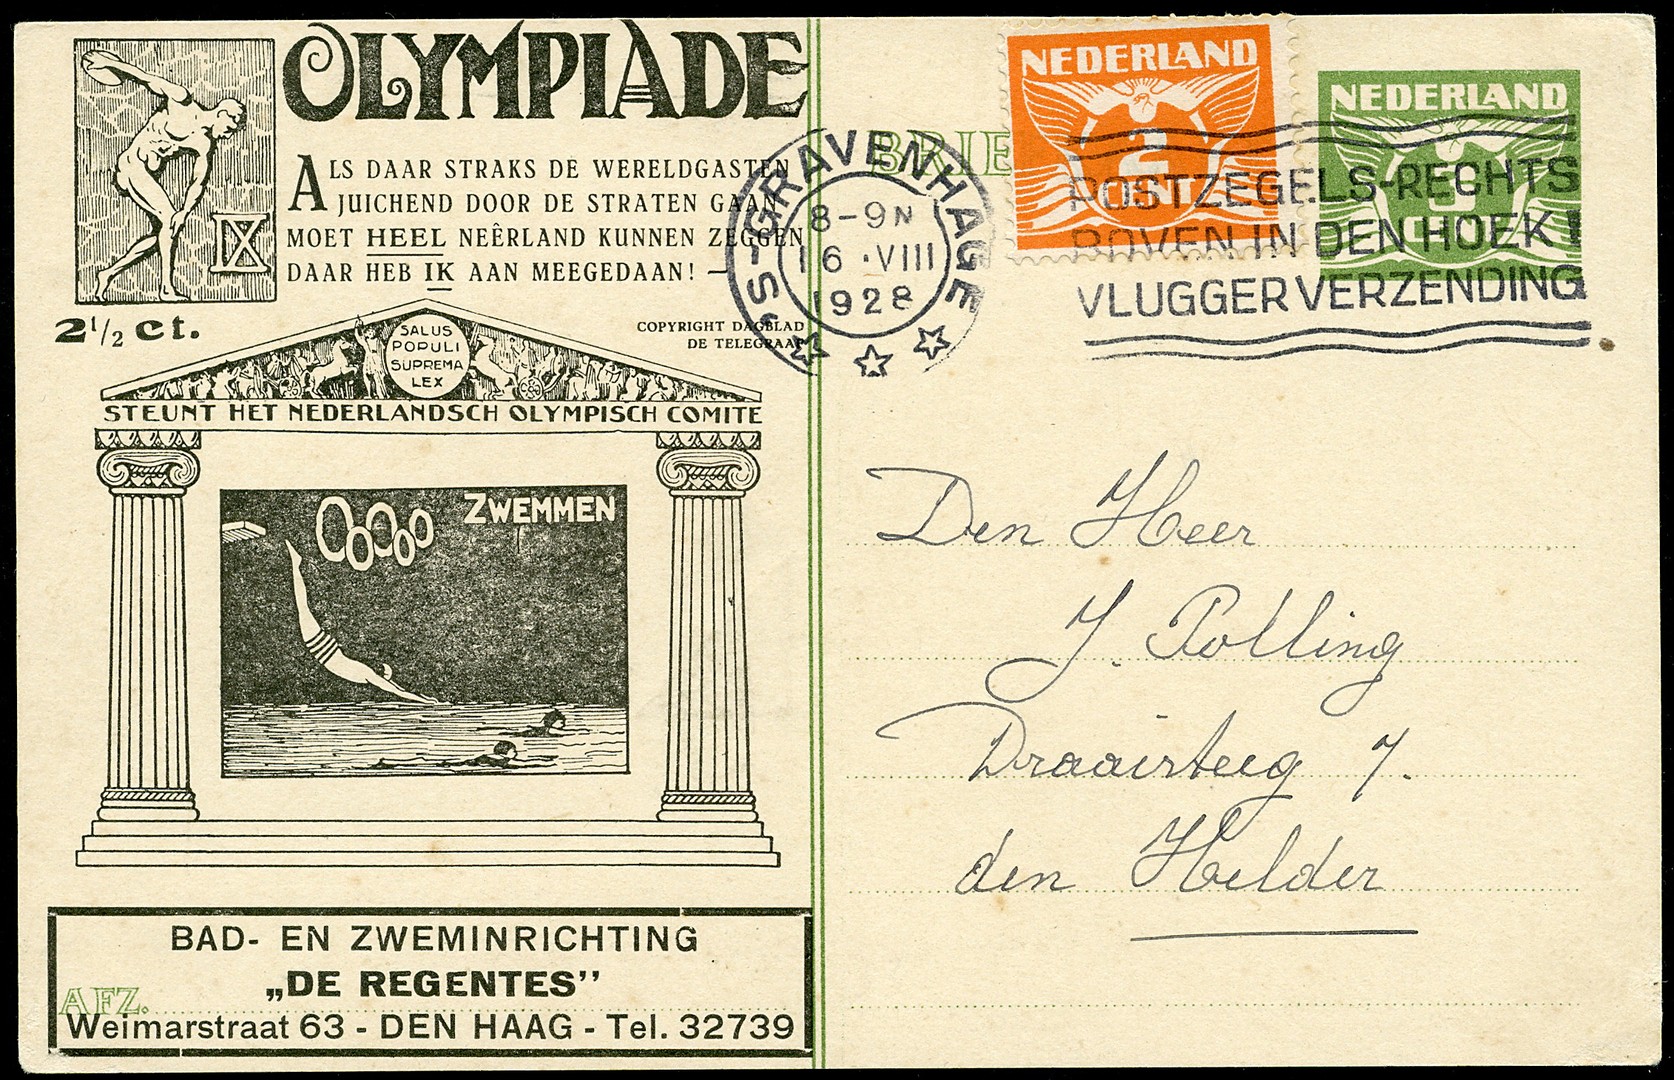 OLYMPIADE
ALS DAAR STRAKS DE WERELDGASTEN
JUICHEND DOOR DE STRATEN GAAN
MOET HEEL NEÊRLAND KUNNEN ZEGGEN
DAAR HEB IK AAN MEEGEDAAN! —
IX
2½ ct.
COPYRIGHT DAGBLAD
DE TELEGRAAF
SALUS
POPULI
SUPREMA
LEX
STEUNT HET NEDERLANDSCH OLYMPISCH COMITE
ZWEMMEN
BAD- EN ZWEMINRICHTING
„DE REGENTES”
AFZ.
Weimarstraat 63 - DEN HAAG - Tel. 32739
BRIE
'S-GRAVENHAGE
8-9N
16 .VIII
1928
NEDERLAND
2
CENT
NEDERLAND
3
CENT
POSTZEGELS-RECHTS
BOVEN IN DEN HOEK!
VLUGGER VERZENDING
Den Heer
J. Polling
7.
den Helder